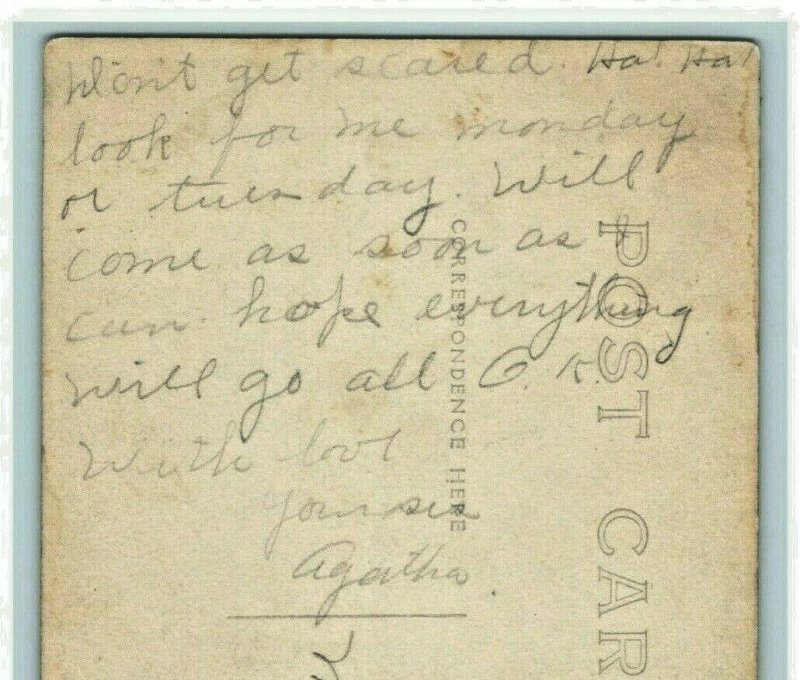 Don't get scared. Ha! Ha!
look for me monday
or tuesday. Will
come as soon as I
can. hope everything
will go all O.K.
With love
Your sis
Agatha.
CORRESPONDENCE HERE
POST CAR